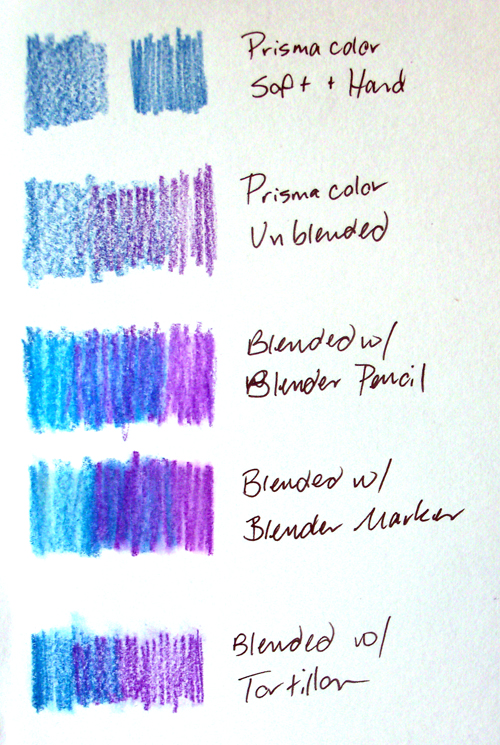 Prisma color
Soft + Hard
Prisma color
Unblended
Blended w/
Blender Pencil
Blended w/
Blender Marker
Blended w/
Tortillon